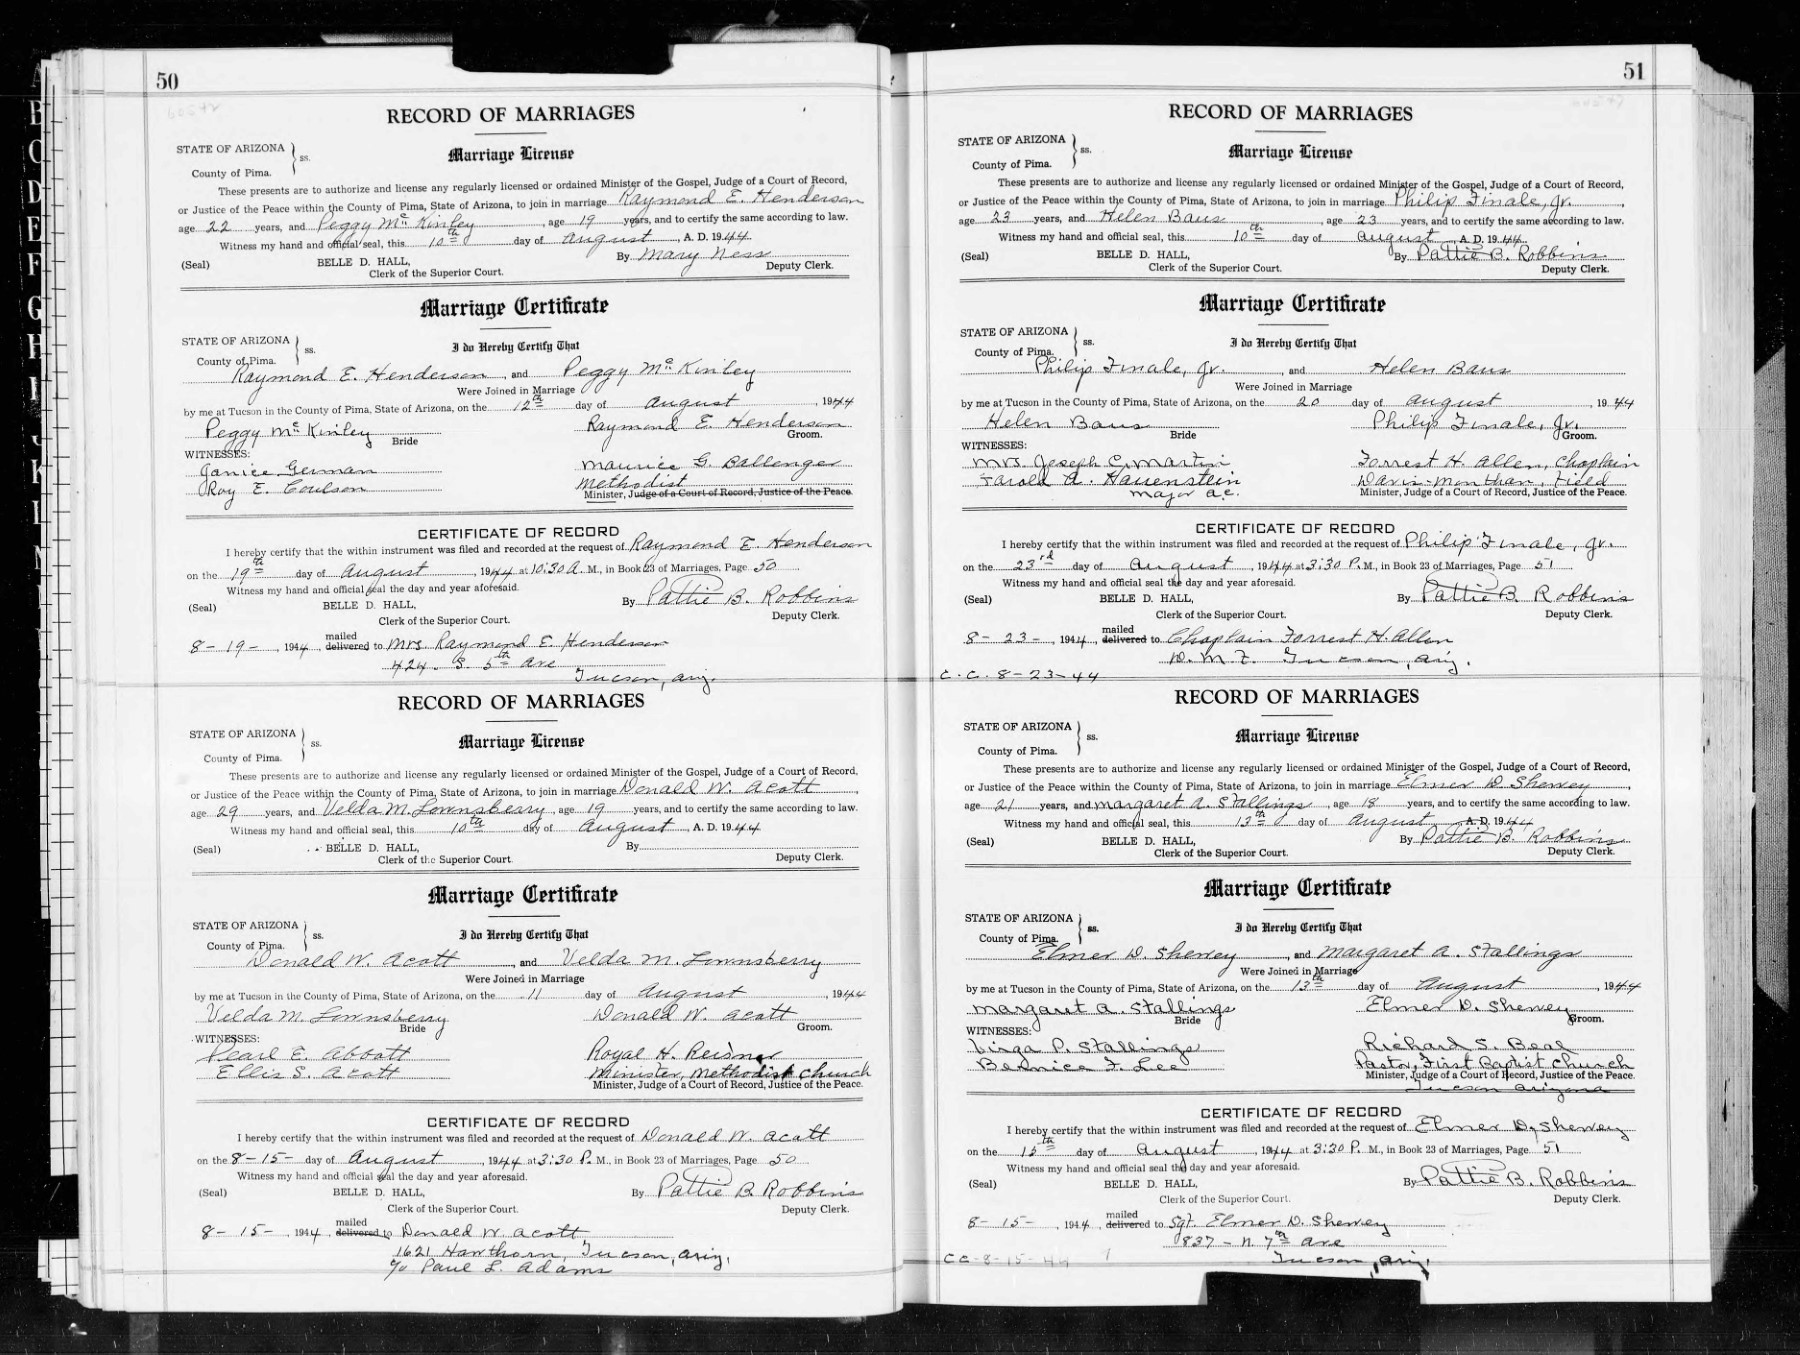 50
RECORD OF MARRIAGES
STATE OF ARIZONA
ss.
County of Pima.
Marriage License
These presents are to authorize and license any regularly licensed or ordained Minister of the Gospel, Judge of a Court of Record,
or Justice of the Peace within the County of Pima, State of Arizona, to join in marriage Raymond E. Henderson
age 22 years, and Peggy McKinley, age 19 years, and to certify the same according to law.
Witness my hand and official seal, this 10th day of August, A. D. 1944
(Seal) BELLE D. HALL, By Mary Ness
Clerk of the Superior Court. Deputy Clerk.
Marriage Certificate
STATE OF ARIZONA
ss.
County of Pima.
I do Hereby Certify That
Raymond E. Henderson, and Peggy McKinley
Were Joined in Marriage
by me at Tucson in the County of Pima, State of Arizona, on the 12th day of August, 1944
Peggy McKinley Raymond E. Henderson
Bride Groom.
WITNESSES:
Janice German Maurice G. Ballenger
Roy E. Coulson Methodist
Minister, Judge of a Court of Record, Justice of the Peace.
CERTIFICATE OF RECORD
I hereby certify that the within instrument was filed and recorded at the request of Raymond E. Henderson
on the 19th day of August, 1944 at 10:30 A. M., in Book 23 of Marriages, Page 50
Witness my hand and official seal the day and year aforesaid.
(Seal) BELLE D. HALL, By Pattie B. Robbins
Clerk of the Superior Court. Deputy Clerk.
8-19-, 1944, mailed delivered to Mrs. Raymond E. Henderson
424 S. 5th Ave
Tucson, Ariz.
RECORD OF MARRIAGES
STATE OF ARIZONA
ss.
County of Pima.
Marriage License
These presents are to authorize and license any regularly licensed or ordained Minister of the Gospel, Judge of a Court of Record,
or Justice of the Peace within the County of Pima, State of Arizona, to join in marriage Donald W. Acott
age 29 years, and Velda M. Lownsberry, age 19 years, and to certify the same according to law.
Witness my hand and official seal, this 10th day of August, A. D. 1944
(Seal) BELLE D. HALL, By
Clerk of the Superior Court. Deputy Clerk.
Marriage Certificate
STATE OF ARIZONA
ss.
County of Pima.
I do Hereby Certify That
Donald W. Acott, and Velda M. Lownsberry
Were Joined in Marriage
by me at Tucson in the County of Pima, State of Arizona, on the 11 day of August, 1944
Velda M. Lownsberry Donald W. Acott
Bride Groom.
WITNESSES:
Pearl E. Abbott Royal H. Reisner
Ellis S. Acott Minister, Methodist Church
Minister, Judge of a Court of Record, Justice of the Peace.
CERTIFICATE OF RECORD
I hereby certify that the within instrument was filed and recorded at the request of Donald W. Acott
on the 8-15- day of August, 1944 at 3:30 P. M., in Book 23 of Marriages, Page 50
Witness my hand and official seal the day and year aforesaid.
(Seal) BELLE D. HALL, By Pattie B. Robbins
Clerk of the Superior Court. Deputy Clerk.
8-15-, 1944, mailed delivered to Donald W Acott
1621 Hawthorn, Tucson, Ariz.
c/o Paul L. Adams
51
RECORD OF MARRIAGES
STATE OF ARIZONA
ss.
County of Pima.
Marriage License
These presents are to authorize and license any regularly licensed or ordained Minister of the Gospel, Judge of a Court of Record,
or Justice of the Peace within the County of Pima, State of Arizona, to join in marriage Philip Finale, Jr.,
age 23 years, and Helen Baus, age 23 years, and to certify the same according to law.
Witness my hand and official seal, this 10th day of August, A. D. 1944
(Seal) BELLE D. HALL, By Pattie B. Robbins
Clerk of the Superior Court. Deputy Clerk.
Marriage Certificate
STATE OF ARIZONA
ss.
County of Pima.
I do Hereby Certify That
Philip Finale, Jr., and Helen Baus
Were Joined in Marriage
by me at Tucson in the County of Pima, State of Arizona, on the 20 day of August, 1944
Helen Baus Philip Finale, Jr.
Bride Groom.
WITNESSES:
Mrs. Joseph C. Martin Forrest H. Allen, Chaplain
Farold A. Hauenstein Davis-Monthan, Field
Major A.C. Minister, Judge of a Court of Record, Justice of the Peace.
CERTIFICATE OF RECORD
I hereby certify that the within instrument was filed and recorded at the request of Philip Finale, Jr.
on the 23rd day of August, 1944 at 3:30 P. M., in Book 23 of Marriages, Page 51
Witness my hand and official seal the day and year aforesaid.
(Seal) BELLE D. HALL, By Pattie B. Robbins
Clerk of the Superior Court. Deputy Clerk.
8-23-, 1944, mailed delivered to Chaplain Forrest H. Allen
D. M. F. Tucson, Ariz.
C.C. 8-23-44
RECORD OF MARRIAGES
STATE OF ARIZONA
ss.
County of Pima.
Marriage License
These presents are to authorize and license any regularly licensed or ordained Minister of the Gospel, Judge of a Court of Record,
or Justice of the Peace within the County of Pima, State of Arizona, to join in marriage Elmer D. Shewey,
age 21 years, and Margaret A. Stallings, age 18 years, and to certify the same according to law.
Witness my hand and official seal, this 13th day of August, A. D. 1944
(Seal) BELLE D. HALL, By Pattie B. Robbins
Clerk of the Superior Court. Deputy Clerk.
Marriage Certificate
STATE OF ARIZONA
ss.
County of Pima.
I do Hereby Certify That
Elmer D. Shewey, and Margaret A. Stallings
Were Joined in Marriage
by me at Tucson in the County of Pima, State of Arizona, on the 13th day of August, 1944
Margaret A. Stallings Elmer D. Shewey
Bride Groom.
WITNESSES:
Virga P. Stallings Richard S. Beal
Bernice F. Lee Pastor, First Baptist Church
Minister, Judge of a Court of Record, Justice of the Peace.
Tucson Arizona
CERTIFICATE OF RECORD
I hereby certify that the within instrument was filed and recorded at the request of Elmer D. Shewey
on the 15th day of August, 1944 at 3:30 P. M., in Book 23 of Marriages, Page 51
Witness my hand and official seal the day and year aforesaid.
(Seal) BELLE D. HALL, By Pattie B. Robbins
Clerk of the Superior Court. Deputy Clerk.
8-15-, 1944, mailed delivered to Sgt. Elmer D. Shewey
837 - N. 7th Ave
Tucson, Ariz.
CC-8-15-44